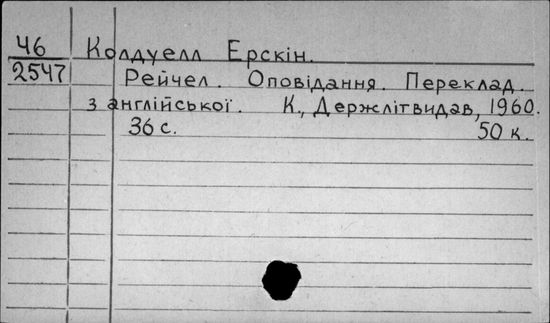 Ч6 Колдуелл Ерскін.
2547 Рейчел. Оповідання. Переклад.
з англійської. К., Держлітвидав, 1960.
36 с. 50 к.